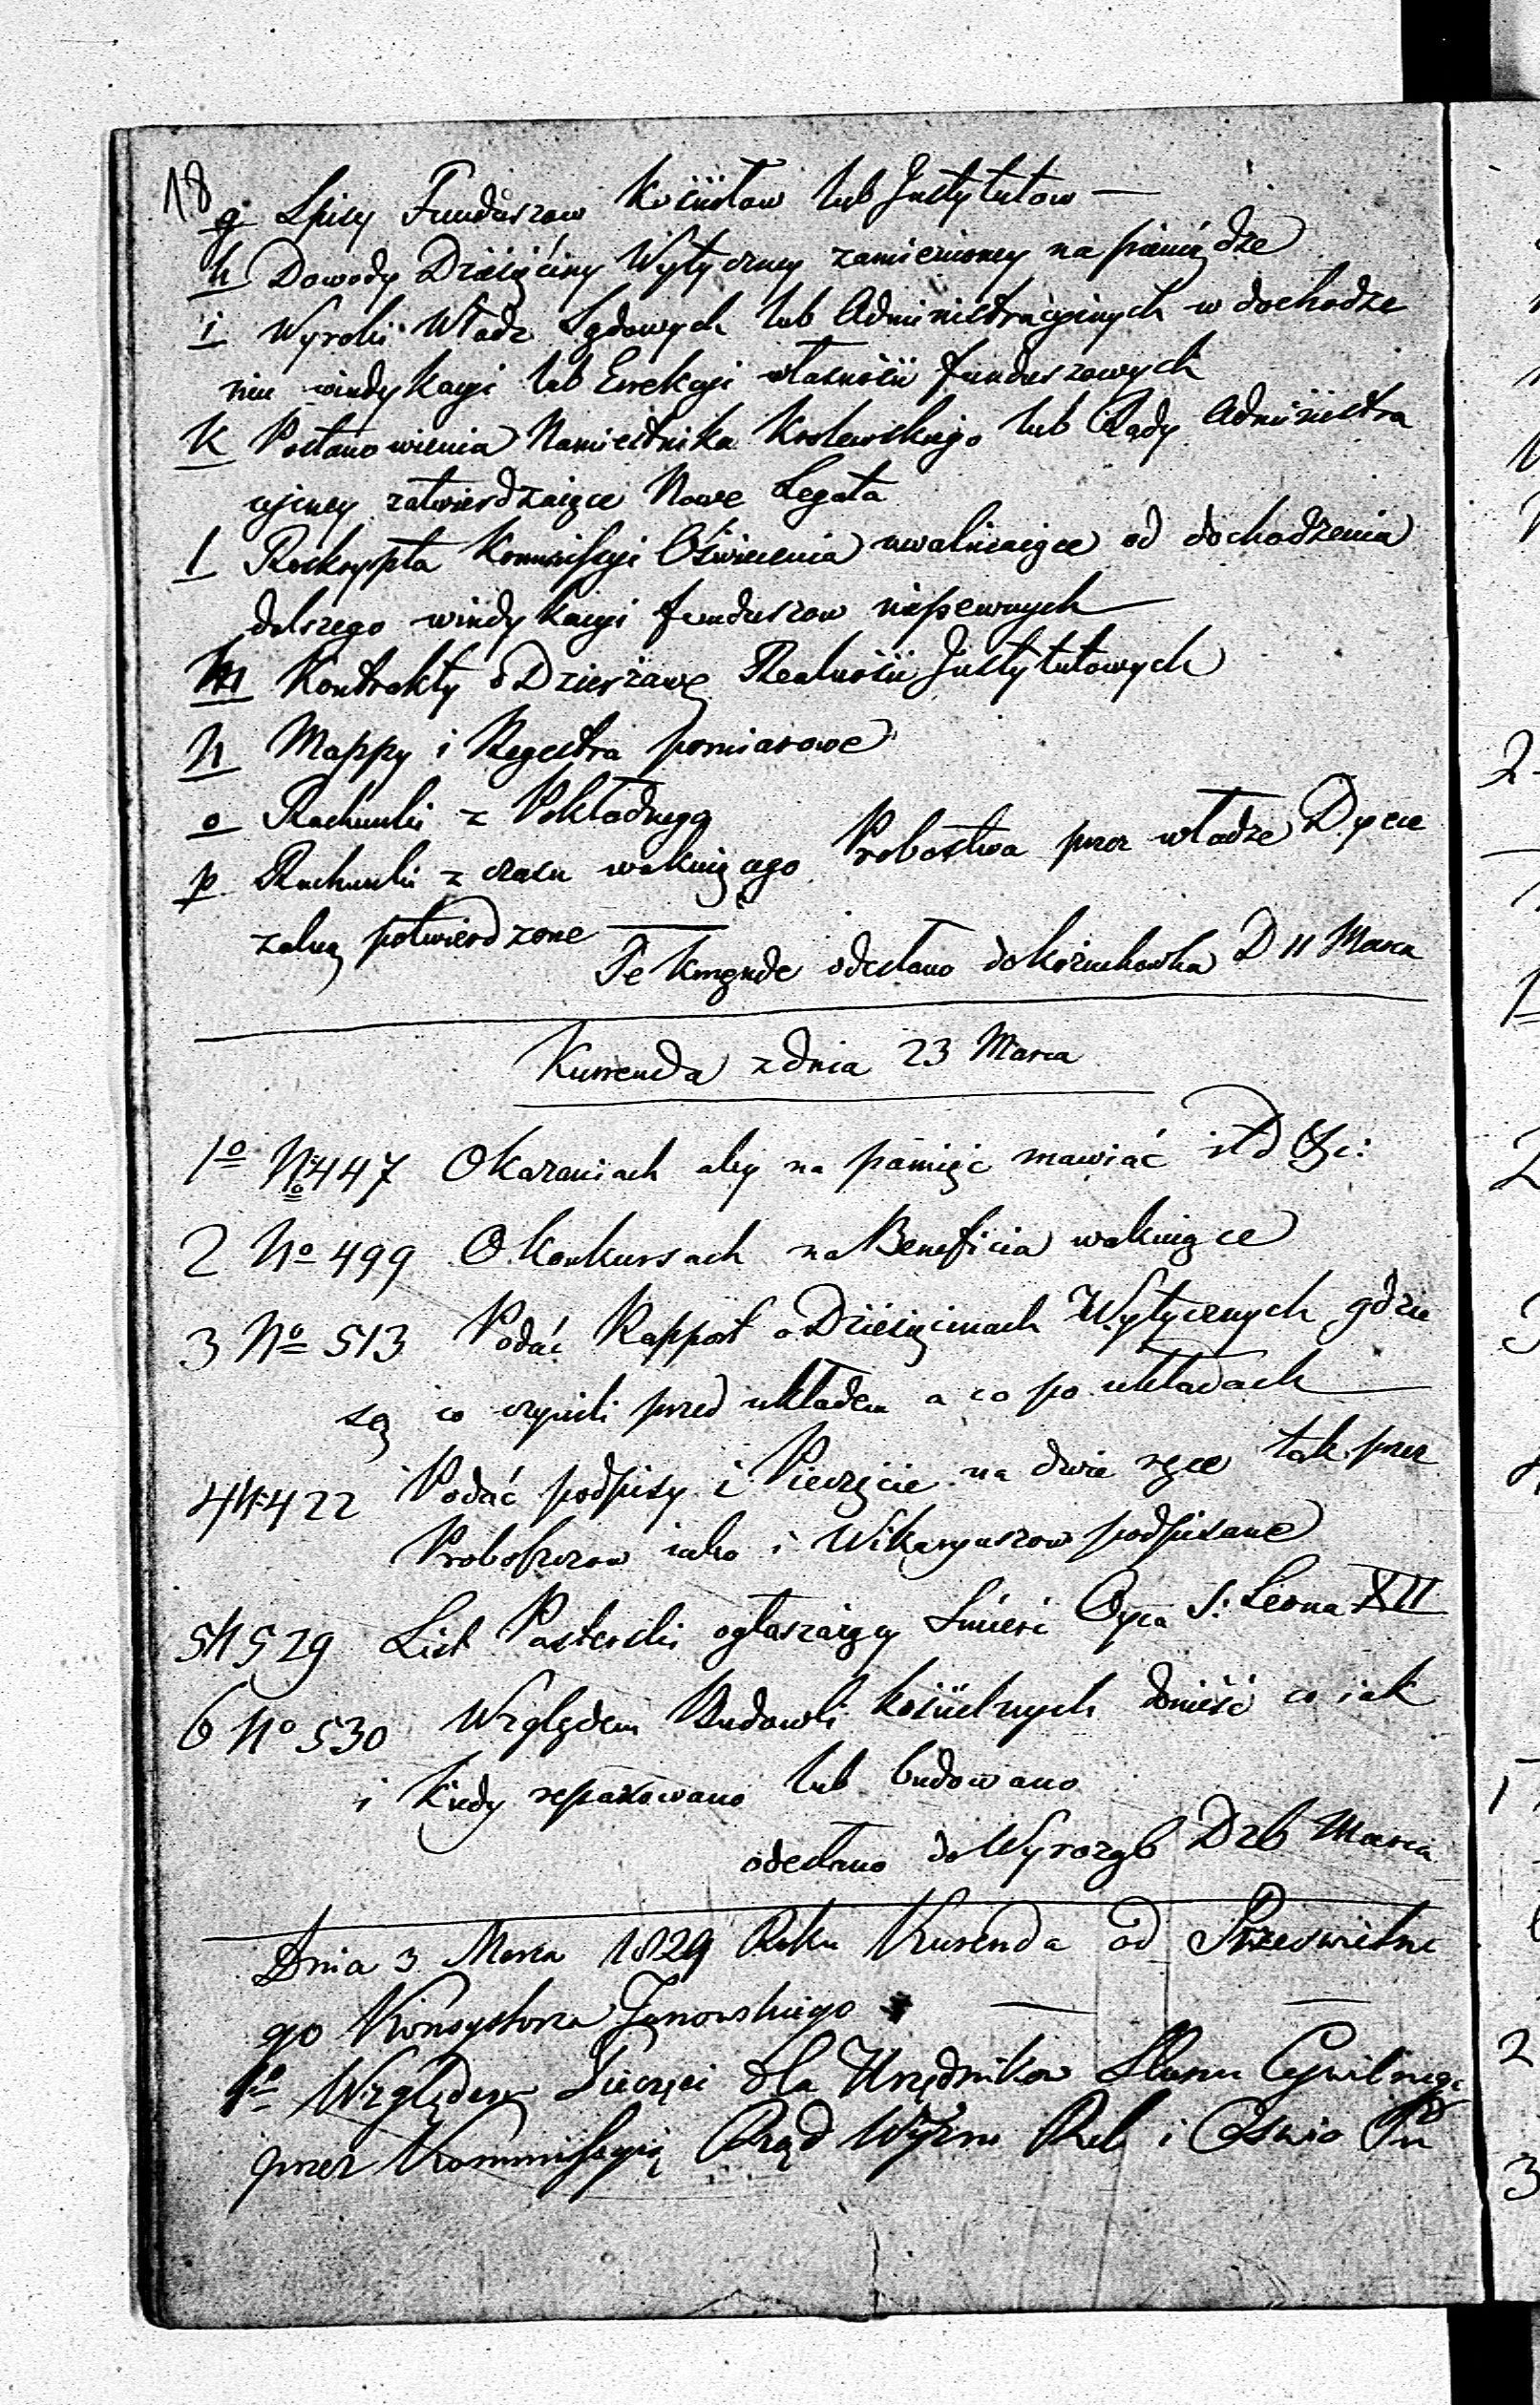 18
g Spisy Funduszow kościołow lub Instytutow —
h Dowody Dziesięciny Wytyczney zamienioney na pieniądze
i Wyroki Władz Sądowych lub Administracyinych w dochodze
niu windykacyi lub Erekcyi własności funduszowych
k Postanowienia Namiestnika Krolewskiego lub Rady Administra
cyiney zatwierdzaiące Nowe Legata
l Reskrypta Kommissyi Oświecenia uwalniaiące od dochodzenia
dalszego windykacyi funduszow niepewnych —
m Kontrakty o Dzierżawę Realności Instytutowych
n Mappy i Regestra pomiarowe
o Rachunki z Pokładnego
p Rachunki z czasu wakuiącego Probostwa przez władze Dyece
zalną potwierdzone —
Te kurrende odesłano do Kożuchowka D 11 Marca
Kurrenda z dnia 23 Marca
1º Nº 447 O kazaniach aby na pamięć mawiać itd &c:
2 Nº 499 O konkursach na Beneficia wakuiące
3 Nº 513 Podać Rapport o Dziesięcinach Wytycznych gdzie
są co czynili przed układem a co po układach —
4 N 422 Podać podpisy i Pieczęcie na dwie ręce tak przez
Proboszczow iako i Wikaryuszow podpisane
5 N 529 List Pasterski ogłaszaiący Śmierć Oyca S: Leona XII
6 Nº 530 Względem Budowli kościelnych donieść co iak
i kiedy reparowano lub budowano
odesłano do Wyrozęb D 26 Marca
Dnia 3 Marca 1829 Roku Kurenda od Prześwietne
go Konsystorza Janowskiego — —
1º Względem Pieczęci dla Urzędnikow Stanu Cywilnego
przez Kommissyią Rząd Wyzn Rel i Oswie Pu